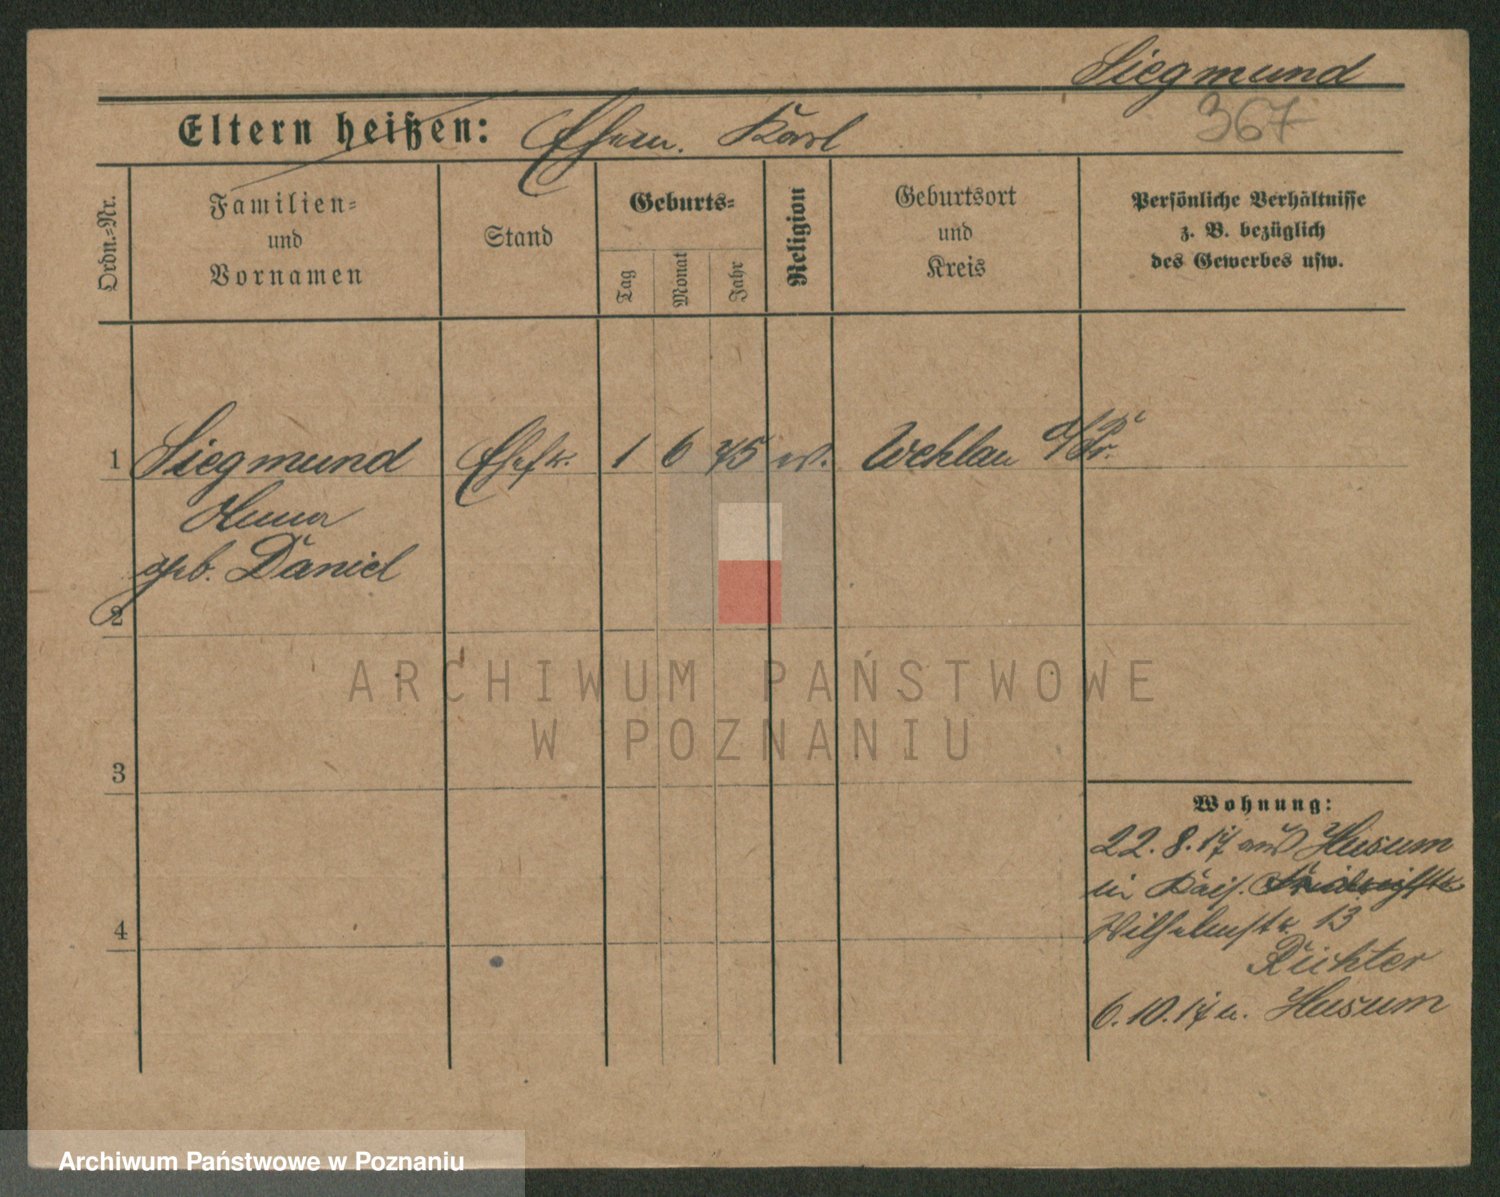 Siegmund
367
Eltern heißen: Ehem. Karl
Ordn.-Nr.
Familien-
und
Vornamen
Stand
Geburts-
Tag
Monat
Jahr
Religion
Geburtsort
und
Kreis
Persönliche Verhältnisse
z. B. bezüglich
des Gewerbes usw.
1 Siegmund Ehefr. 1 6 75 ev. Wehlau O/Pr.
geb. Daniel
2
3
4
Wohnung:
22.8.17 aus Husum
in Kais.
Wilhelmstr. 13
Richter
6.10.17 n. Husum
ARCHIWUM PAŃSTWOWE
W POZNANIU
Archiwum Państwowe w Poznaniu